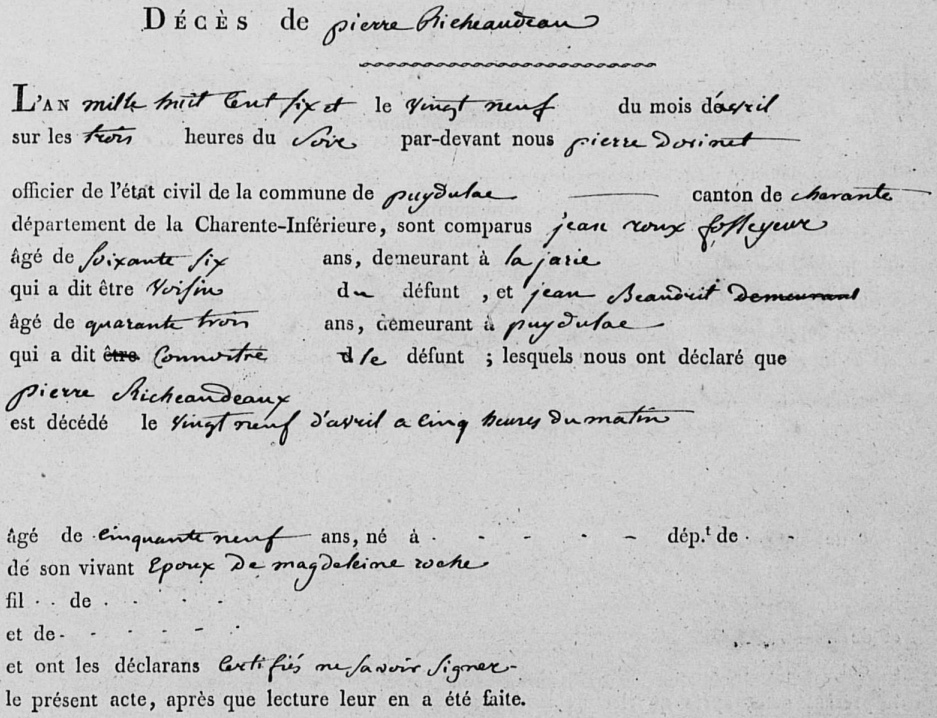 DÉCÈS de pierre Richeaudeau
L'AN mille huit Cent six et le vingt neuf du mois d'avril
sur les trois heures du Soir par-devant nous pierre Dorinet
officier de l'état civil de la commune de puydulac canton de charante
département de la Charente-Inférieure, sont comparus jean roux fosseyeur
âgé de soixante six ans, demeurant à la jarie
qui a dit être voisin du défunt , et jean Beaudrit demeurant
âgé de quarante trois ans, demeurant à puydulac
qui a dit être Connoitre le défunt ; lesquels nous ont déclaré que
pierre Richeaudeaux
est décédé le vingt neuf d'avril a cinq heures du matin
âgé de cinquante neuf ans, né à - - - - dép.t de - -
de son vivant Epoux De magdeleine roche
fil . . de . . . .
et de - - - - -
et ont les déclarans Certifiés ne savoir signer -
le présent acte, après que lecture leur en a été faite.